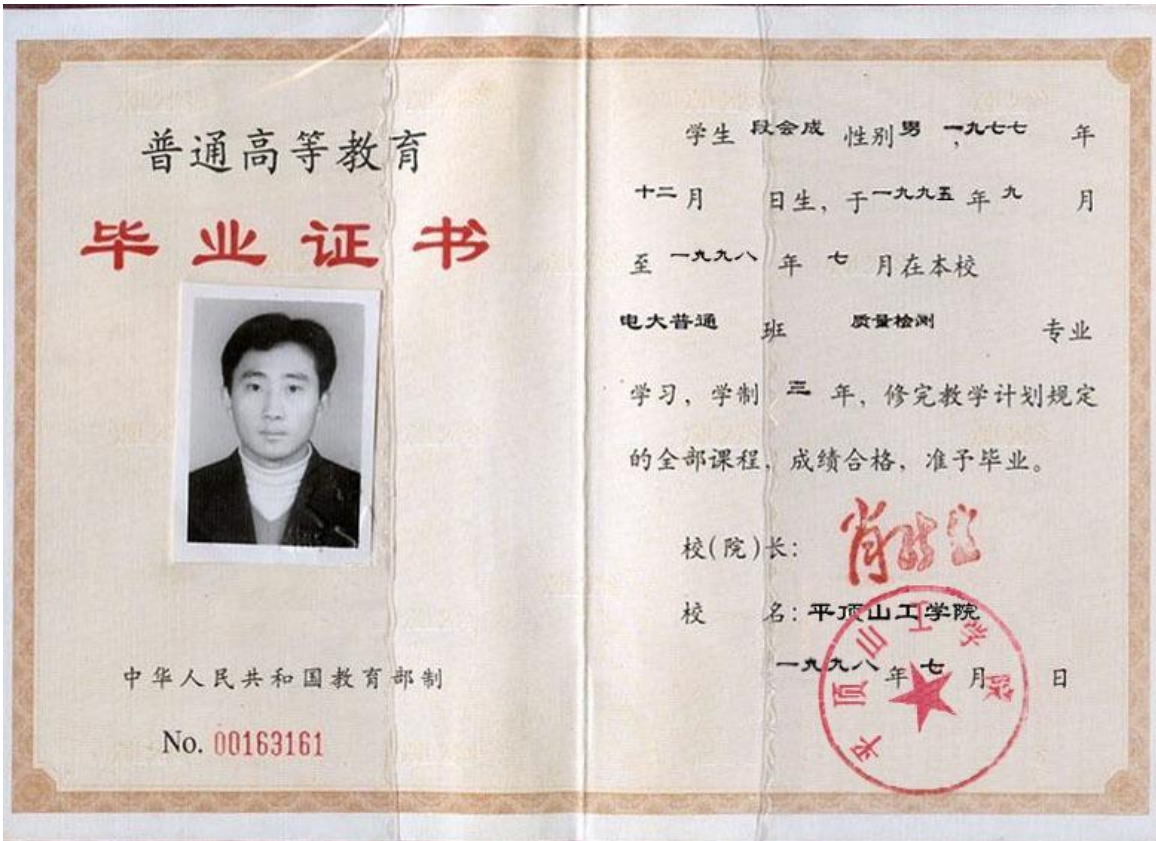 普通高等教育
毕业证书
中华人民共和国教育部制
No. 00163161
学生 段会成 性别 男 , 一九七七 年
十二 月 日生, 于 一九九五 年 九 月
至 一九九八 年 七 月在本校
电大普通 班 质量检测 专业
学习, 学制 三 年, 修完教学计划规定
的全部课程, 成绩合格, 准予毕业。
校(院)长:
校 名: 平顶山工学院
一九九八 年 七 月 日
平顶山工学院